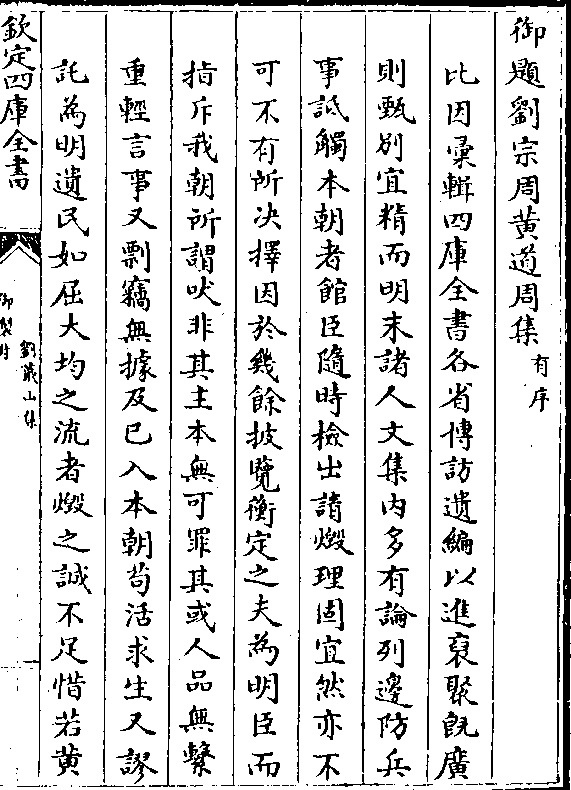 御題劉宗周黃道周集有序
比因彙輯四庫全書各省博訪遺編以進裒聚旣廣
則甄別宜精而明末諸人文集内多有論列邊防兵
事詆觸本朝者館臣隨時檢出請燬理固宜然亦不
可不有所决擇因於幾餘披覽衡定之夫為明臣而
指斥我朝所謂吠非其主本無可罪其或人品無繫
重輕言事又剽竊無據及已入本朝苟活求生又謬
託為明遺民如屈大均之流者燬之誠不足惜若黄
欽定四庫全書
劉蕺山集
御製